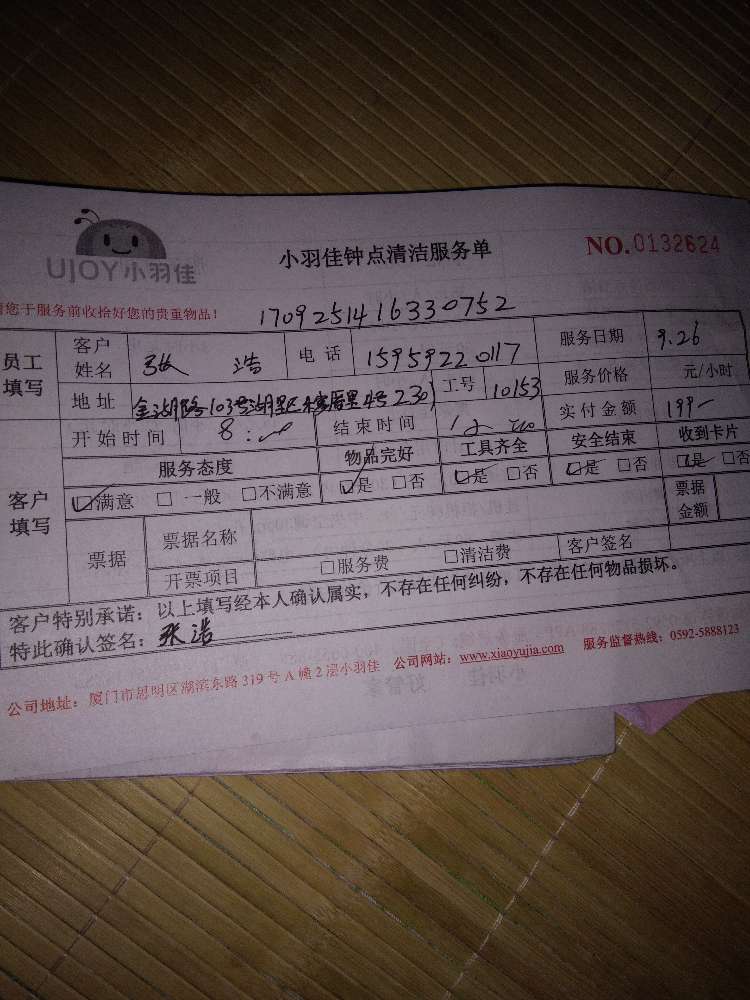 UJOY小羽佳
小羽佳钟点清洁服务单
NO.0132624
您于服务前收拾好您的贵重物品!
1709251416330752
员工填写 客户姓名 张浩 电话 15959220117 服务日期 9.26
地址 金湖路103号湖里区 号230 工号 10153 服务价格 元/小时
开始时间 8: 结束时间 实付金额 199-
客户填写 服务态度 物品完好 工具齐全 安全结束 收到卡片
☑满意 □一般 □不满意 ☑是 □否 ☑是 □否 ☑是 □否 ☑是 □否
票据 票据名称 票据金额
开票项目 □服务费 □清洁费 客户签名
客户特别承诺:以上填写经本人确认属实,不存在任何纠纷,不存在任何物品损坏。
特此确认签名:张浩
公司地址:厦门市思明区湖滨东路319号A幢2层小羽佳 公司网站:www.xiaoyujia.com 服务监督热线:0592-5888123